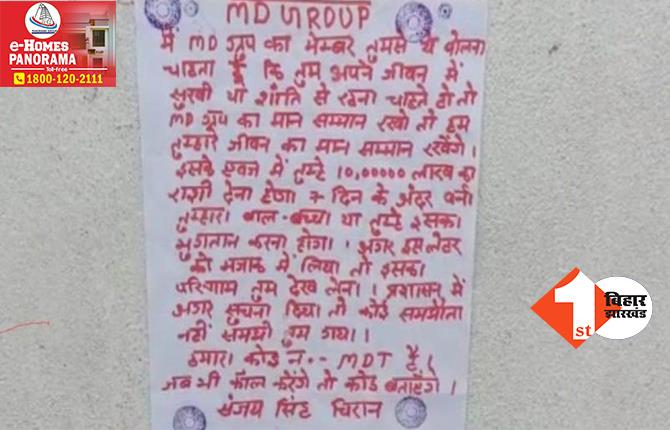 e-HOMES
PANORAMA
Toll-free
1800-120-2111
MD GROUP
में MD ग्रुप का मेम्बर तुमसे ये बोलना
चाहता हूँ कि तुम अपने जीवन में
सुखी यो शांति से रहना चाहते हो तो
MD ग्रुप का मान सम्मान रखो तो हम
तुम्हारे जीवन का मान सम्मान रखेंगे।
इसके एवज में तुम्हे 10,00000 लाख का
राशी देना होगा 7 दिन के अंदर वर्ना
तुम्हारा बाल-बच्चा या तुम्हे इसका
भुगतान करना होगा। अगर इस लेटर
को मजाक में लिया तो इसका
परिणाम तुम देख लेना। प्रशासन में
अगर सुचना दिया तो कोई समझौता
नहीं समझो तुम गया।
हमारा कोड न.- MDT है।
जब भी कॉल करेंगे तो कोड बताएंगे।
संजय सिंह चिरान
1st
बिहार
झारखंड